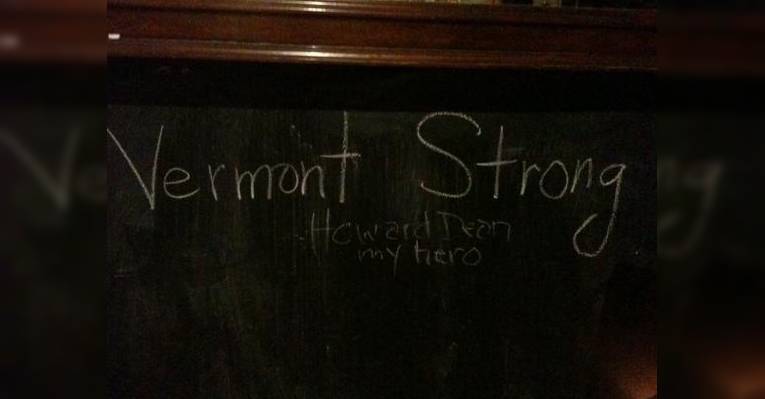 Vermont Strong
Howard Dean
my hero